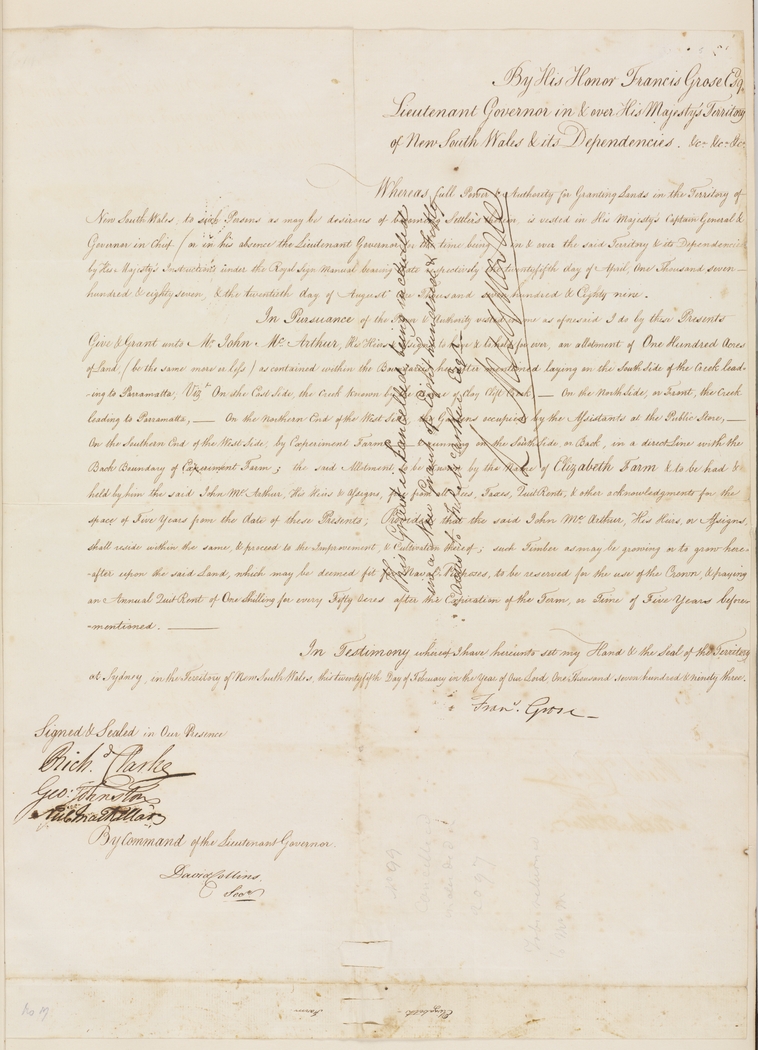 By His Honor Francis Grose Esq.
Lieutenant Governor in & over His Majesty's Territory
of New South Wales & its Dependencies. &c. &c. &c.
Whereas full Power & Authority for Granting Lands in the Territory of
New South Wales, to such Persons as may be desirous of becoming Settlers therein, is vested in His Majesty's Captain General &
Governor in Chief, (or in his absence the Lieutenant Governor for the time being) in & over the said Territory & its Dependencies
by His Majesty's Instructions under the Royal Sign Manual bearing date respectively the twenty fifth day of April, One Thousand seven
hundred & eighty seven, & the twentieth day of August One Thousand seven hundred & Eighty nine.
In Pursuance of the Power & Authority vested in me as aforesaid I do by these Presents
Give & Grant unto Mr. John Mc. Arthur, His Heirs & Assigns to have & to hold for ever, an allotment of One Hundred Acres
of Land, (be the same more or less) as contained within the Boundaries hereafter mentioned laying on the South Side of the Creek lead-
-ing to Parramatta, Vizt. On the East Side, the Creek known by the Name of Clay Cliff Creek — On the North Side, or Front, the Creek
leading to Parramatta, — On the Northern End of the West Side, the Gardens occupied by the Assistants at the Public Store, —
On the Southern End of the West Side, by Experiment Farm — & running on the South Side, or Back, in a direct Line with the
Back Boundary of Experiment Farm; the said Allotment to be known by the Name of Elizabeth Farm & to be had &
held by him the said John Mc. Arthur, His Heirs & Assigns, free from all Fees, Taxes, Quit Rents, & other acknowledgments for the
space of Five Years from the date of these Presents; Provided that the said John Mc. Arthur, His Heirs, or Assigns,
shall reside within the same, & proceed to the Improvement, & Cultivation thereof; such Timber as may be growing or to grow here-
-after upon the said Land, which may be deemed fit for Naval Purposes, to be reserved for the use of the Crown, & paying
an Annual Quit Rent of One Shilling for every Fifty Acres after the Expiration of the Term, or Time of Five Years before
-mentioned. —
In Testimony whereof I have hereunto set my Hand & the Seal of the Territory
at Sydney, in the Territory of New South Wales, this twenty fifth Day of February in the Year of Our Lord One Thousand seven hundred & ninety three.
Frans. Grose
This Grant is Cancelled, being included
in a New Grant of Eight hundred & Fifty
Acres to John McArthur Esqr.
Signed & Sealed in Our Presence
Richd. Clarke
Geo: Johnston
By Command of the Lieutenant Governor.
David Collins
Secy
Cancelled
2097
Elizabeth
Farm